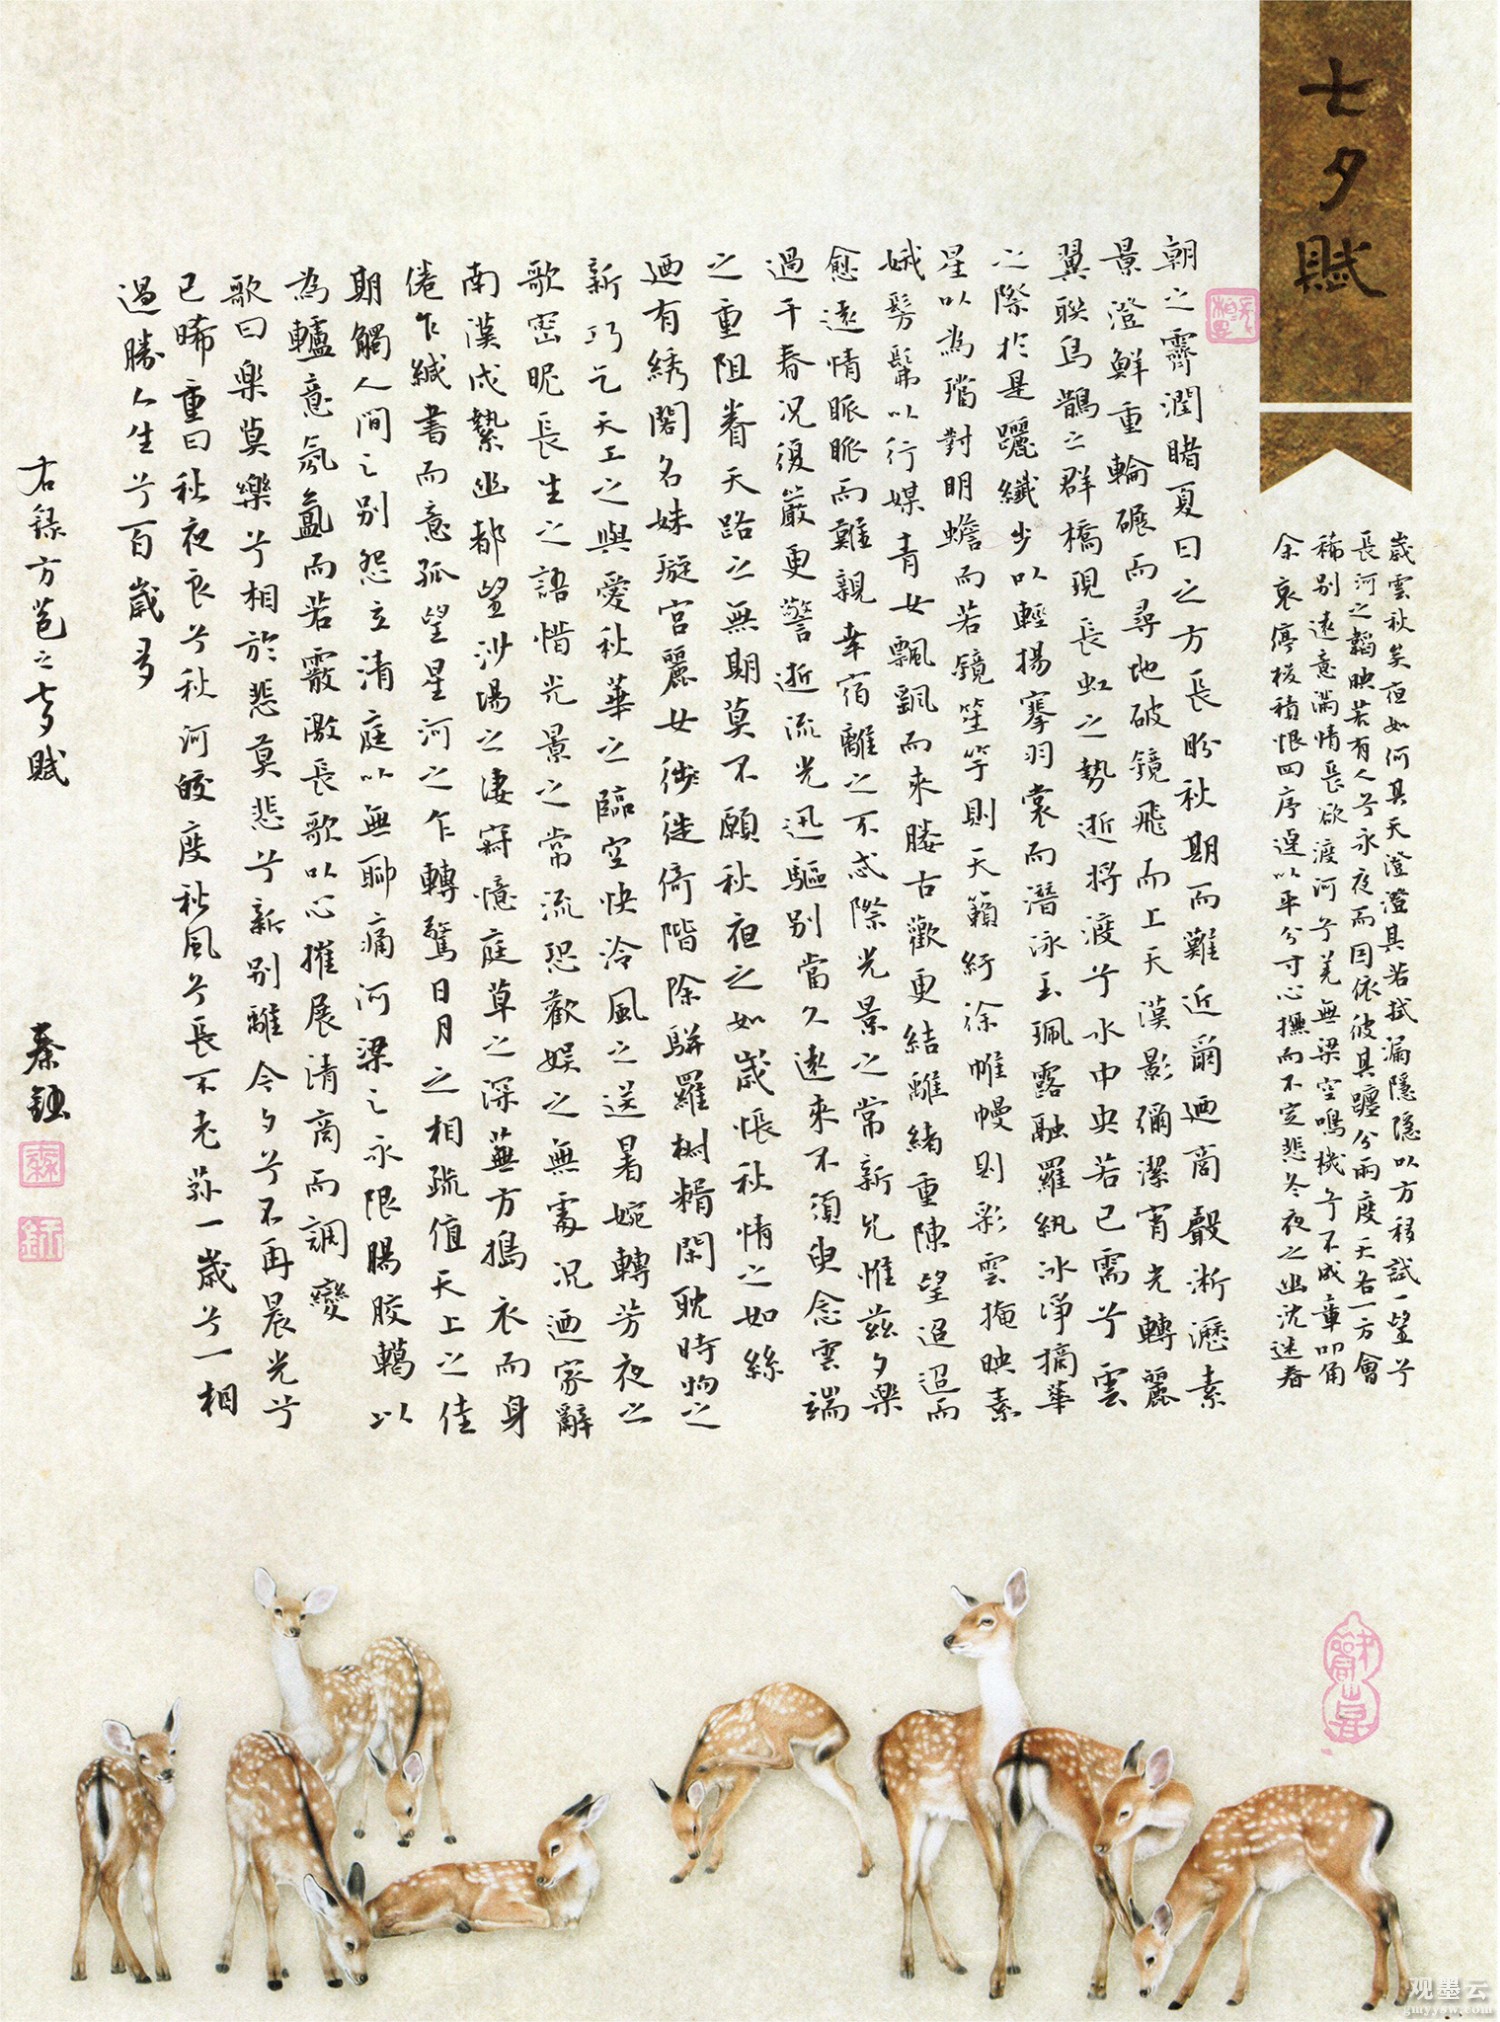 七夕賦
歲雲秋矣夜如何其天澄澄其若拭漏隱隱以方移試一望兮
長河之韜映若有人兮永夜而因依彼其躔分兩度天各一方會
稀別遠意滿情長欲渡河兮羌無梁空鳴機兮不成章叩角
余哀停梭積恨四序遑以平分寸心撫而不定悲冬夜之幽沈迷春
朝之霽潤睹夏日之方長盼秋期而難近爾迺商聲淅瀝素
景澄鮮重輪碾而尋地破鏡飛而上天漢影彌潔宵光轉麗
翼聯烏鵲之群橋現長虹之勢逝將渡兮水中央若已需兮雲
之際於是躧纖步以輕揚搴羽裳而潛泳玉珮露融羅紈冰淨摘華
星以為璫對明蟾而若鏡笙竽則天籟紆徐帷幔則彩雲掩映素
娥髣髴以行媒青女飄飄而來媵古歡更結離緒重陳望迢迢而
愈遠情脈脈而難親幸宿離之不忒際光景之常新兄惟茲夕樂
過千春況復嚴更警逝流光迅驅別當久遠來不須臾念雲端
之重阻眷天路之無期莫不願秋夜之如歲悵秋情之如絲
迺有綉閣名姝璇宮麗女徙倚階除駢羅樹糈閑耽時物之
新巧乞天工之與愛秋華之臨空快泠風之送暑婉轉芳夜之
歌密昵長生之語惜光景之常流恐歡娛之無處況迺家辭
南漢戍縶幽都望沙場之淒寂憶庭草之深蕪方搗衣而身
倦乍緘書而意孤望星河之乍轉驚日月之相疏值天上之佳
期觸人間之別怨立清庭以無聊痛河梁之永限腸膠轕以
為轤意氛氳而若霰激長歌以心摧展清商而調變
歌曰樂莫樂兮相於悲莫悲兮新別離今夕兮不再晨光兮
已晞重曰秋夜良兮秋河皎度秋風兮長不老菾一歲兮一相
過勝人生兮百歲多
右錄方苞之七夕賦
秦鈺
观墨云
gmyysw.com